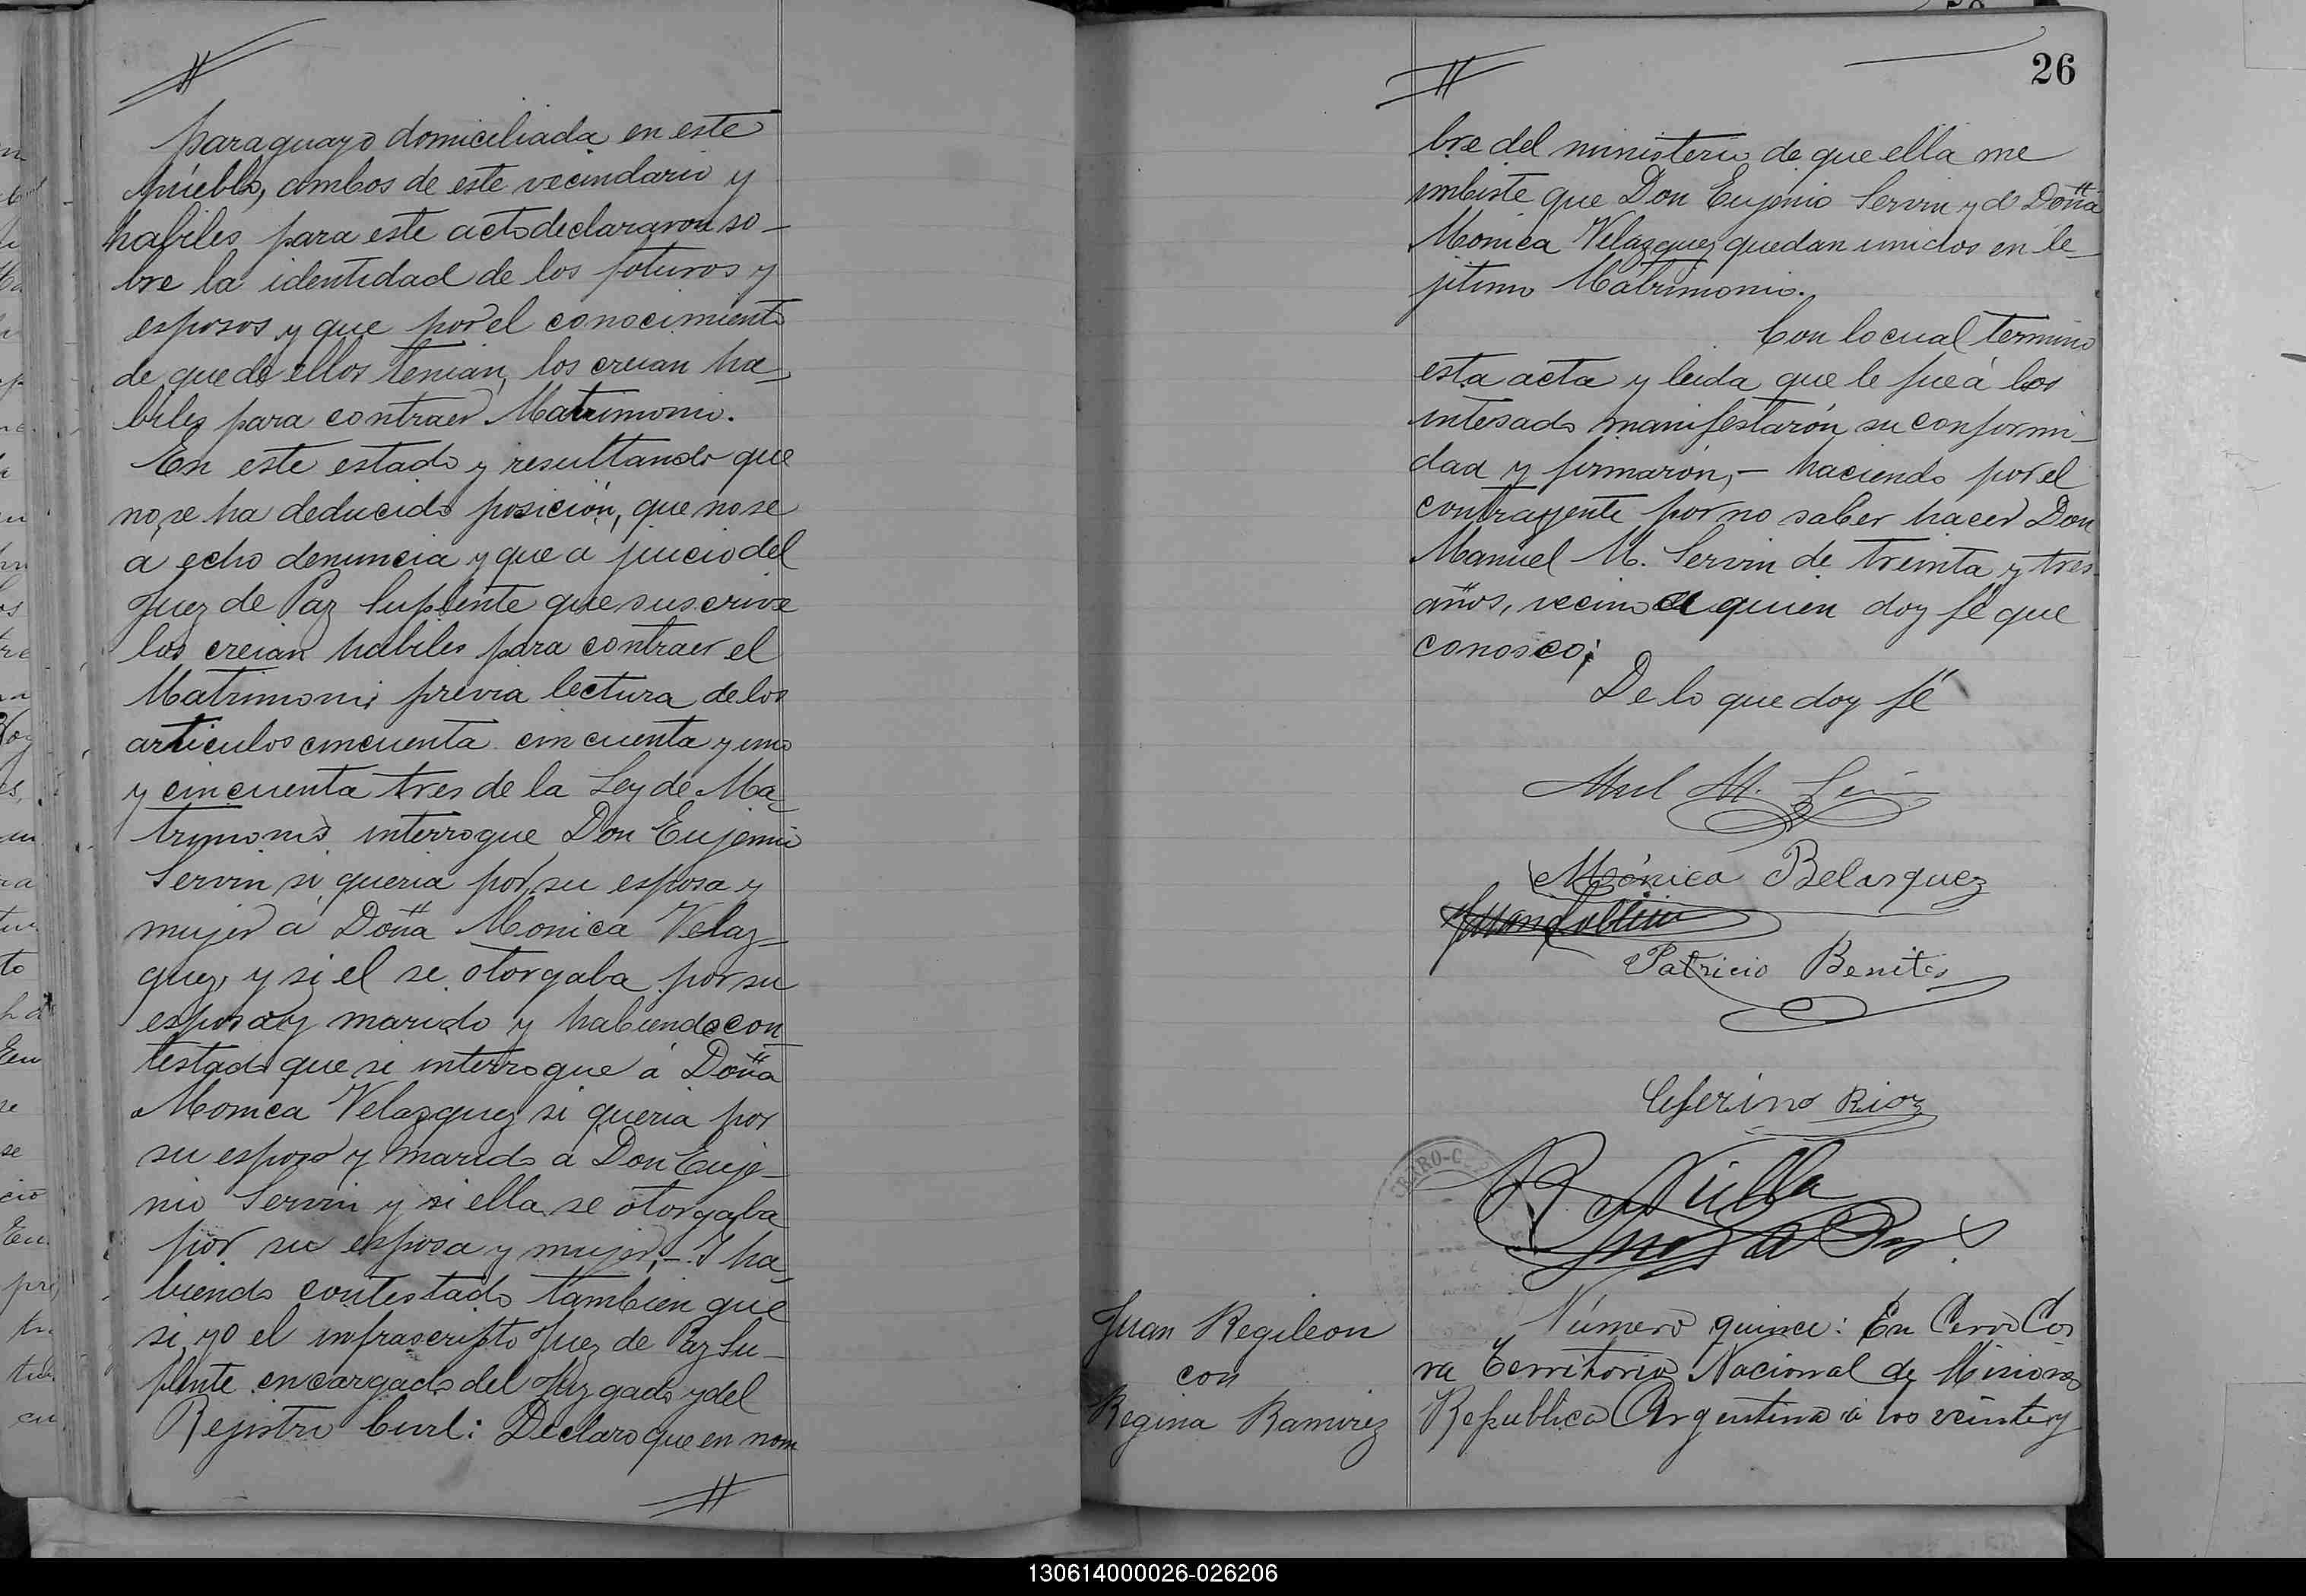 paraguayo domiciliada en este
pueblo, ambos de este vecindario y
habiles para este acto declararon so-
bre la identidad de los foturos y
esposos y que por el conocimiento
de que de ellos tenian, los creian ha-
biles para contraer Matrimonio.
En este estado y resultando que
no se ha deducido posición, que no se
a echo denuncia y que a juicio del
Juez de Paz Suplente que suscrive
los creian habiles para contraer el
Matrimonio previa lectura de los
articulos cincuenta cincuenta y uno
y cincuenta tres de la Ley de Ma-
trimonio interrogue Don Eujenio
Servin si queria por su esposa y
mujer a Doña Monica Velaz-
quez y si el se otorgaba por su
esposo y marido y habiendo con
testado que si interrogue á Doña
Monica Velazquez si queria por
su esposo y marido a Don Euje-
nio Servin y si ella se otorgaba
por su esposa y mujer,-Y ha-
biendo contestado tambien que
si, yo el infrascripto Juez de Paz Su-
plente encargado del Juzgado y del
Rejistro Civil: Declaro que en nom
26
bre del ministerio de que ella me
imbiste que Don Eujenio Servin y de Doña
Monica Velazquez quedan unidos en le-
jitimo Matrimonio.
Con lo cual termino
esta acta y leida que le fue á los
intesado manifestarón su conformi-
dad y firmarón,- haciendo por el
contrayente por no saber hacer Don
Manuel M. Servin de treinta y tres
años, vecino a quien doy fé que
conosco;
De lo que doy fé
Mnl M.
Mónica Belasquez
Patricio Benites
Ceferino Rioz
CERRO-C
Villa
Juez de Paz S.
Juan Regileon
con
Regina Ramirez
Número quince: En Cerro Co
ra Territorio Nacional de Misiones
Republica Argentina á los veinte y
130614000026-026206